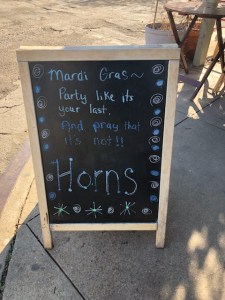 Mardi Gras~
Party like its
your last.
And pray that
its not!!
Horns